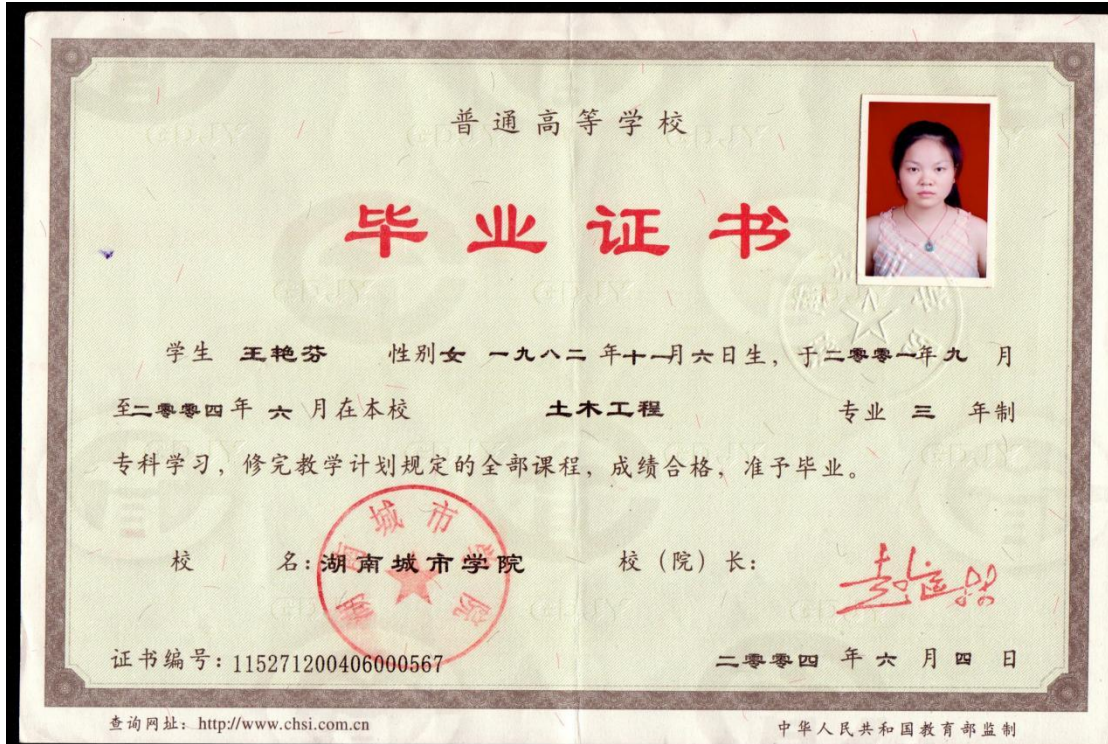 普通高等学校
毕业证书
学生 王艳芬 性别女 一九八二年十一月六日生，于二零零一年九月
至二零零四年六月在本校 土木工程 专业 三 年制
专科学习，修完教学计划规定的全部课程，成绩合格，准予毕业。
校 名：湖南城市学院 校（院）长：
湖南城市学院
证书编号：115271200406000567 二零零四年六月四日
查询网址：http://www.chsi.com.cn 中华人民共和国教育部监制